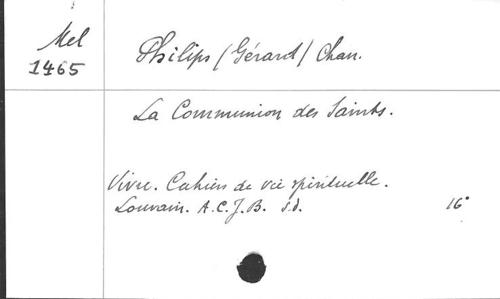 Mel
1465
Philips (Gérard) Chan.
La Communion des Saints.
Vivre. Cahiers de vie spirituelle.
Louvain. A.C.J.B. s.d. 16°